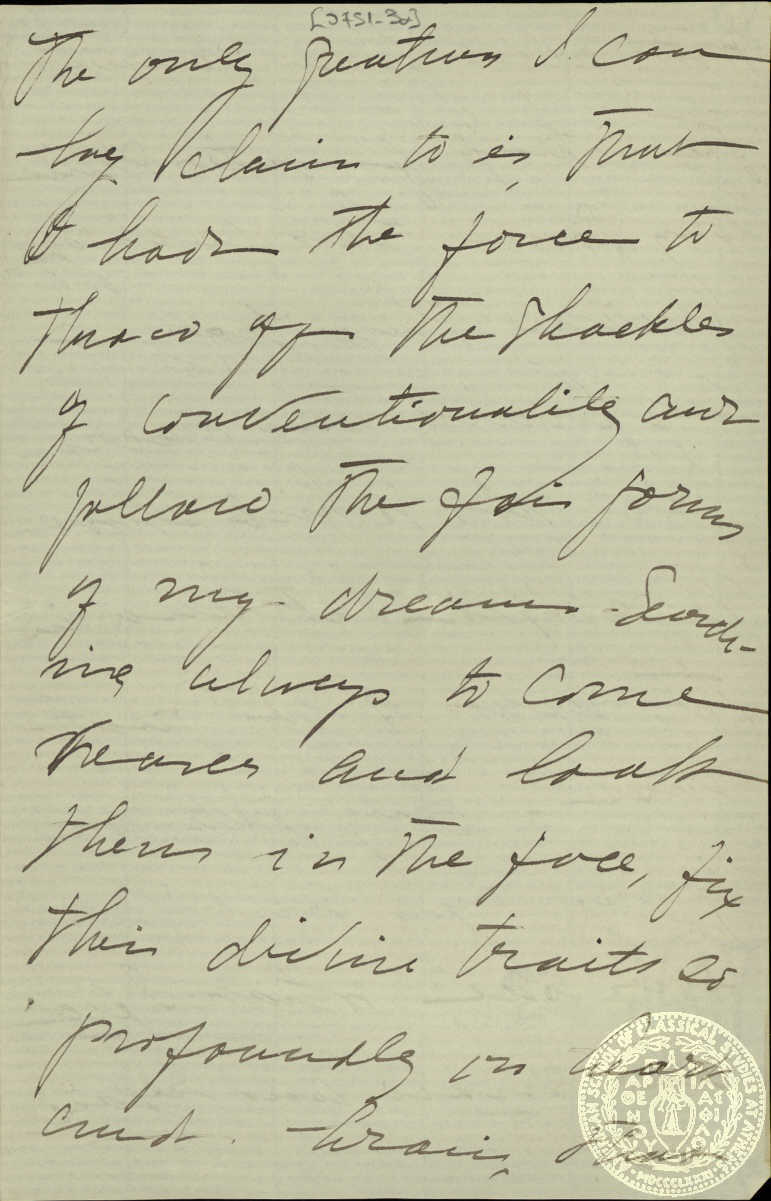 [3751-32]
The only greatness I can
lay claim to is, that
I had the force to
throw off the shackles
of conventionality and
follow the fair forms
of my dreams - Search-
ing always to come
nearer and look
them in the face, fix
their divine traits so
profoundly on heart
and brain,
AMERICAN SCHOOL OF CLASSICAL STUDIES AT ATHENS
ΠΑΡΘΕΝΟΥ ΦΙΛΑΣ ΦΙΛΟΙ
MDCCCLXXXI